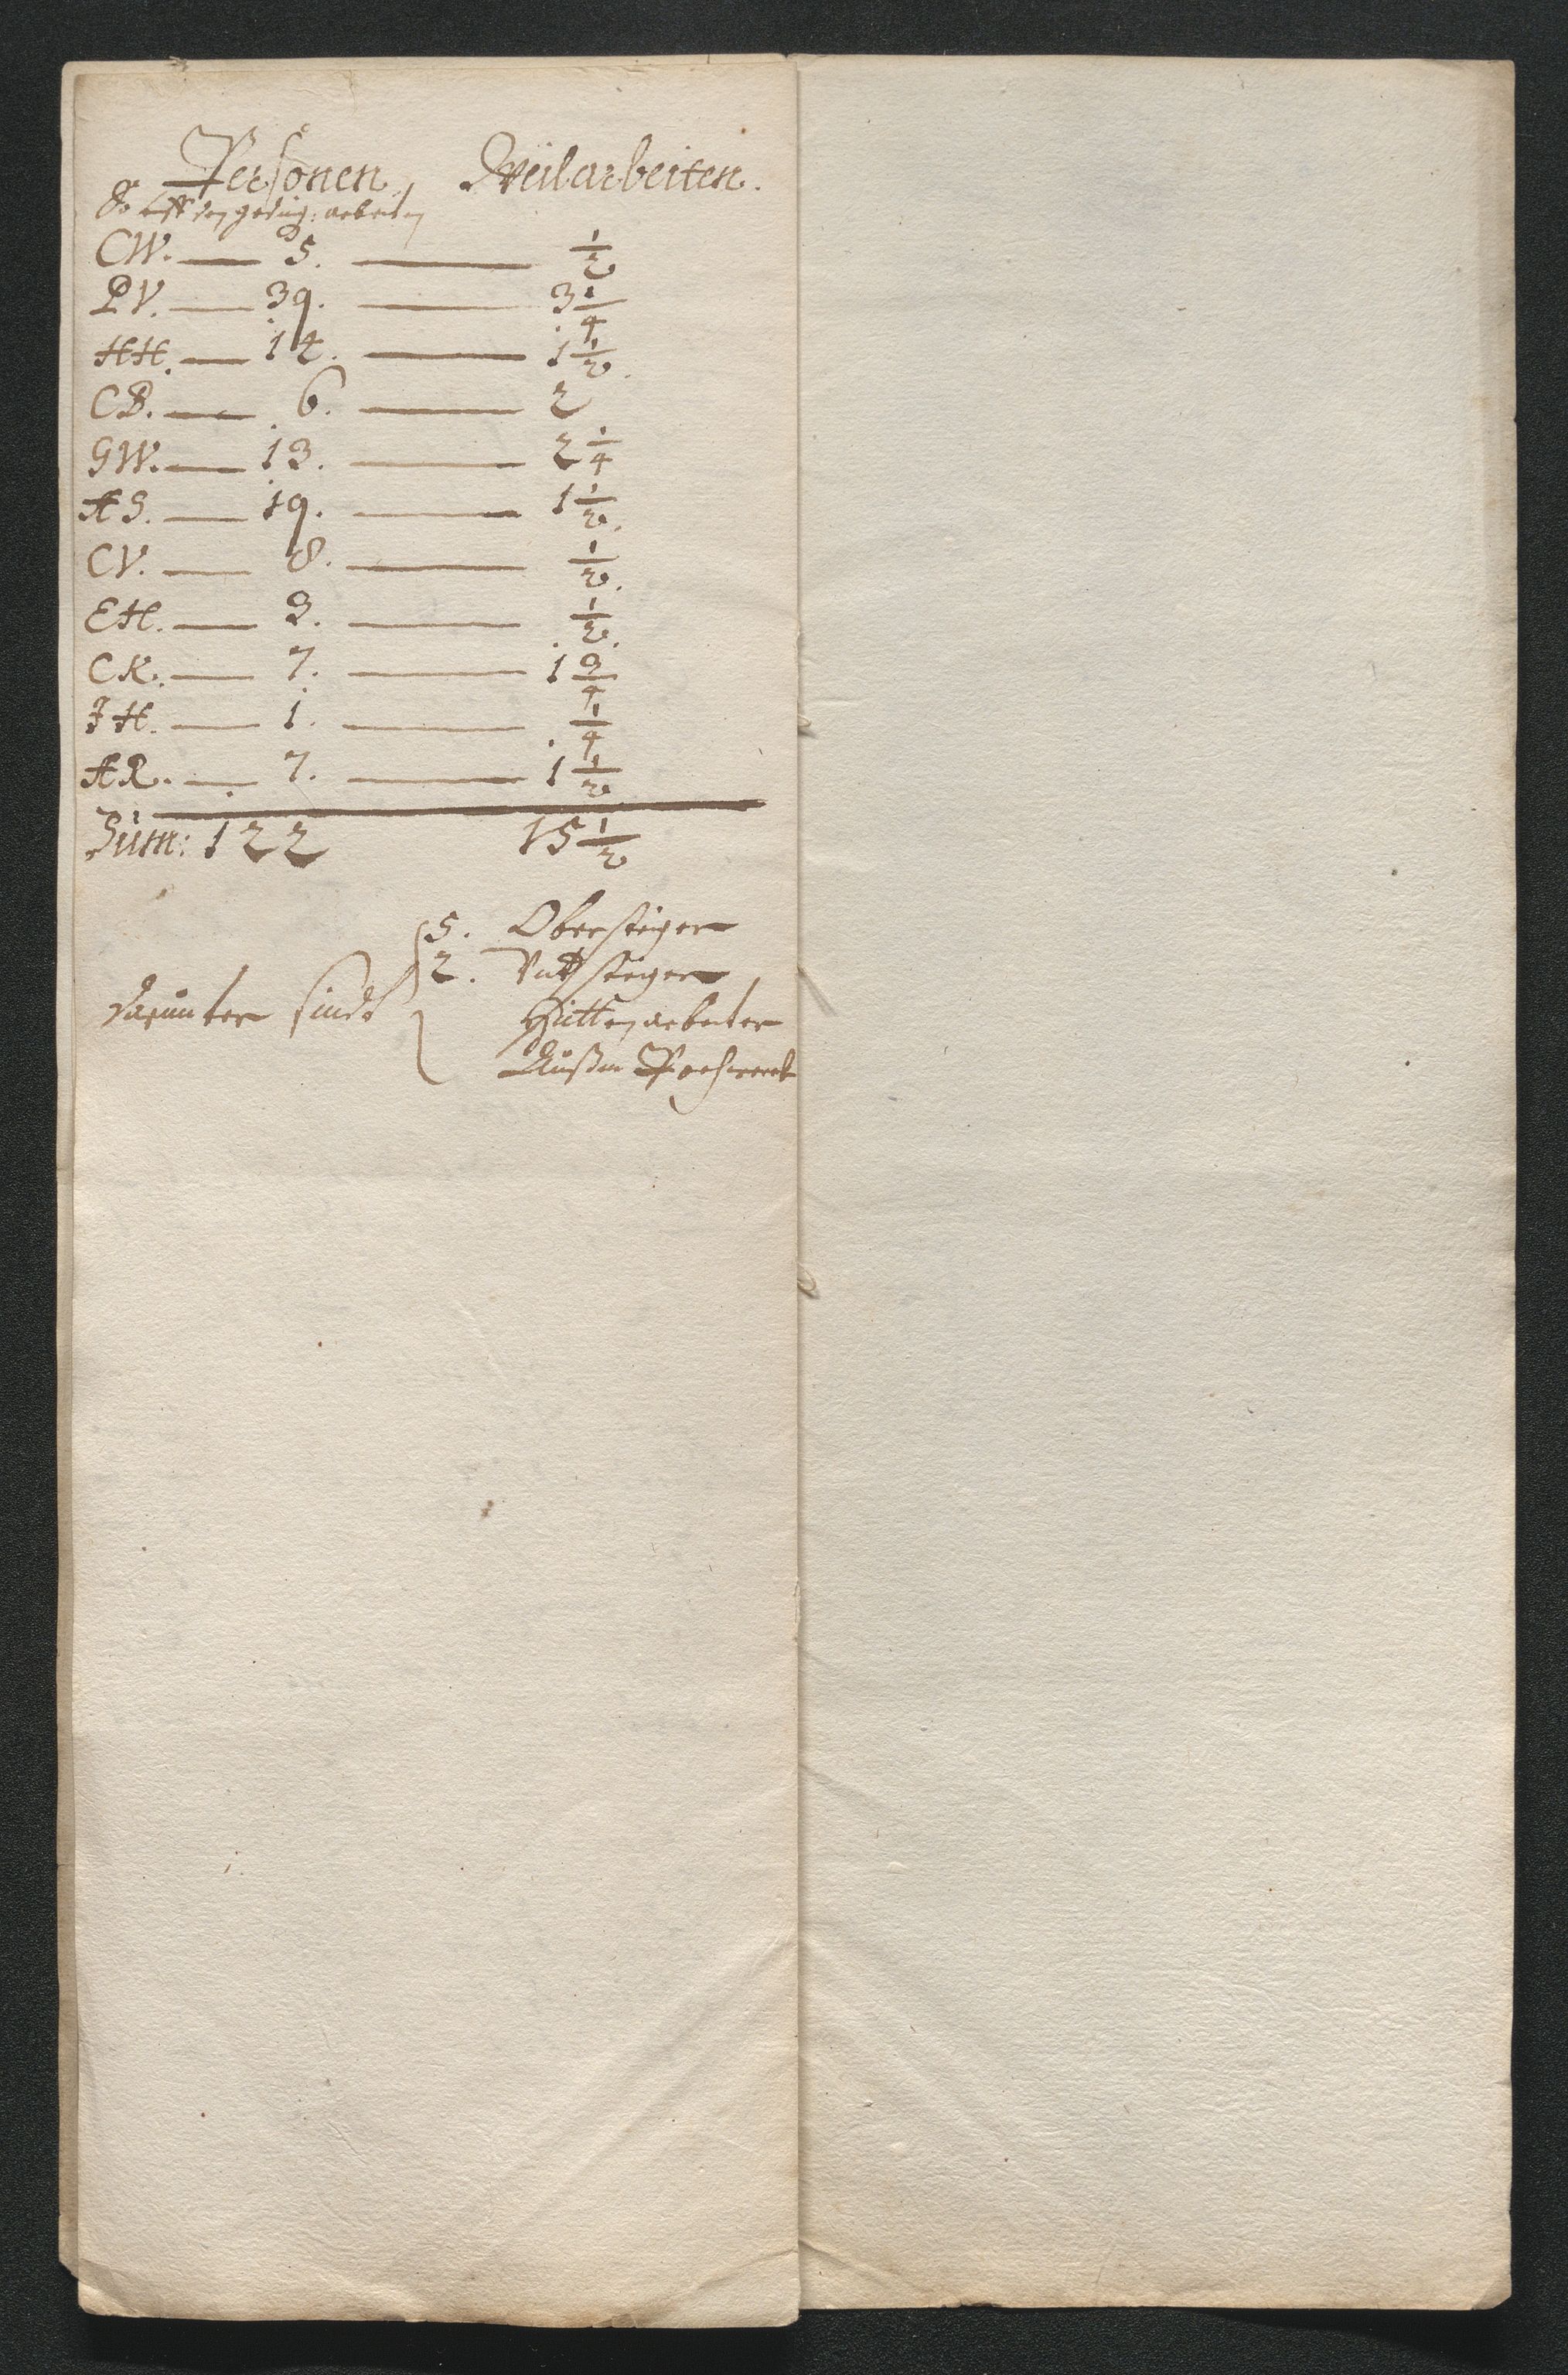 Personen Weilarbeiten.
So uff den geding: arbeiten
CW. — 5. — 1/2
PV. — 39. — 3 1/4
HH. — 14. — 1 1/2.
CB. — 6. — 2
GW. — 13. — 2 1/4
AS. — 19. — 1 1/2.
CV. — 8. — 1/2.
EH. — 3. — 1/2.
CK. — 7. — 1 3/4
JH. — 1. — 1/4
AR. — 7. — 1 1/2
Sum: 122 15 1/2
darunter sindt
5. Obersteiger
2. Vntsteiger
Hüttenarbeiter
Außm Pochwerck